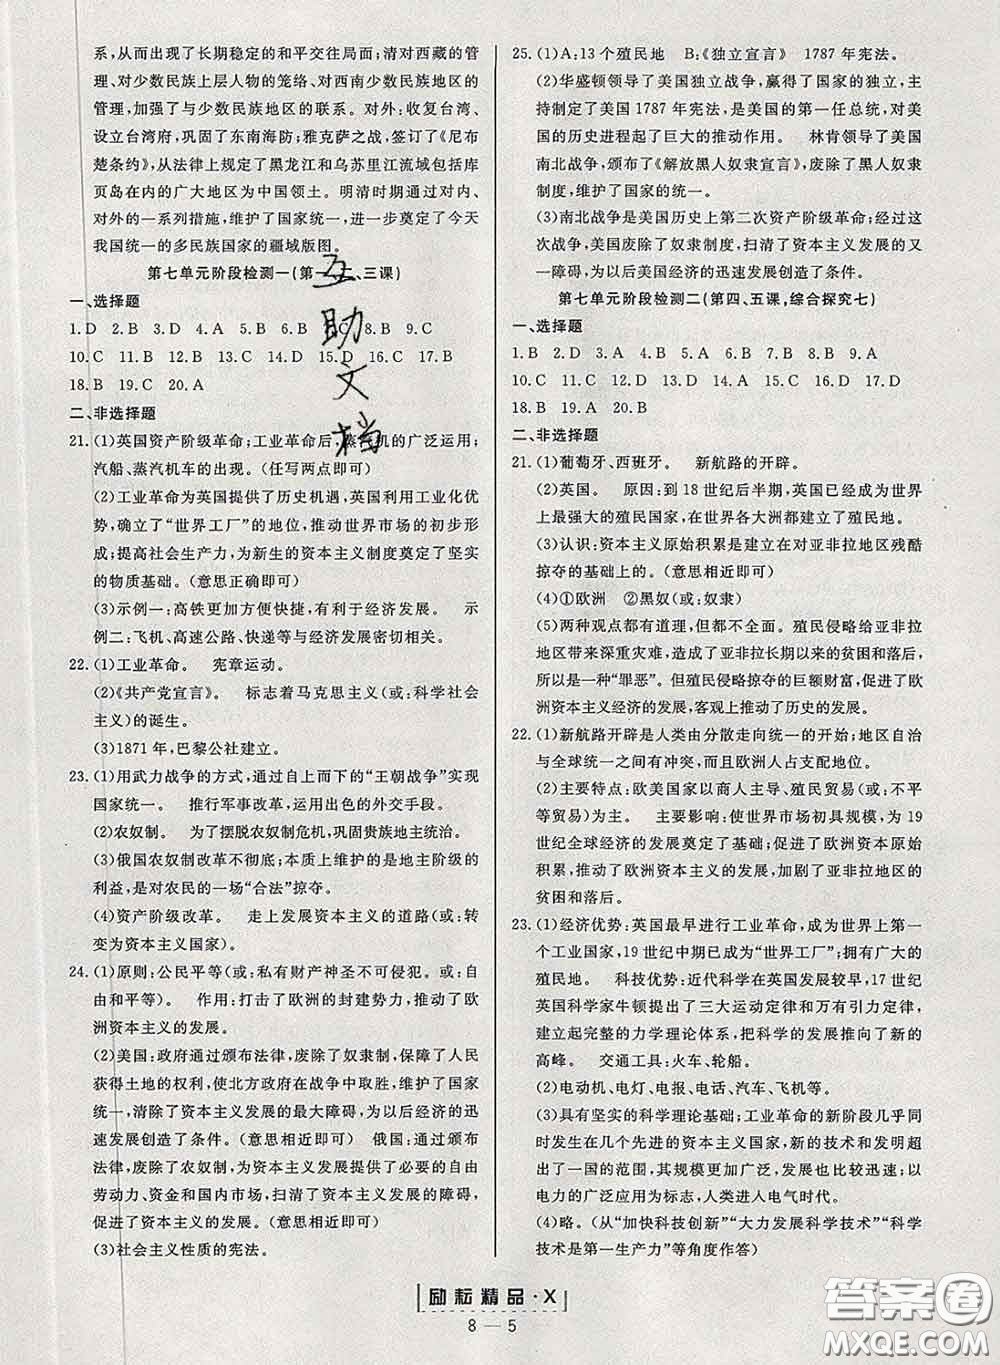 系,从而出现了长期稳定的和平交往局面;清对西藏的管
理、对少数民族上层人物的笼络、对西南少数民族地区的
管理,加强了与少数民族地区的联系。对外:收复台湾、
设立台湾府,巩固了东南海防;雅克萨之战,签订了《尼布
楚条约》,从法律上规定了黑龙江和乌苏里江流域包括库
页岛在内的广大地区为中国领土。明清时期通过对内、
对外的一系列措施,维护了国家统一,进一步奠定了今天
我国统一的多民族国家的疆域版图。
第七单元阶段检测一(第一、二、三课)
一、选择题
1.D 2.B 3.D 4.A 5.B 6.B 7.C 8.B 9.C
10.C 11.B 12.B 13.C 14.D 15.D 16.C 17.B
18.B 19.C 20.A
二、非选择题
21.(1)英国资产阶级革命;工业革命后,蒸汽机的广泛运用;
汽船、蒸汽机车的出现。(任写两点即可)
(2)工业革命为英国提供了历史机遇,英国利用工业化优
势,确立了“世界工厂”的地位,推动世界市场的初步形
成;提高社会生产力,为新生的资本主义制度奠定了坚实
的物质基础。(意思正确即可)
(3)示例一:高铁更加方便快捷,有利于经济发展。 示
例二:飞机、高速公路、快递等与经济发展密切相关。
22.(1)工业革命。 宪章运动。
(2)《共产党宣言》。 标志着马克思主义(或:科学社会
主义)的诞生。
(3)1871年,巴黎公社建立。
23.(1)用武力战争的方式,通过自上而下的“王朝战争”实现
国家统一。 推行军事改革,运用出色的外交手段。
(2)农奴制。 为了摆脱农奴制危机,巩固贵族地主统治。
(3)俄国农奴制改革不彻底;本质上维护的是地主阶级的
利益,是对农民的一场“合法”掠夺。
(4)资产阶级改革。 走上发展资本主义的道路(或:转
变为资本主义国家)。
24.(1)原则:公民平等(或:私有财产神圣不可侵犯。或:自
由和平等)。 作用:打击了欧洲的封建势力,推动了欧
洲资本主义的发展。
(2)美国:政府通过颁布法律,废除了奴隶制,保障了人民
获得土地的权利,使北方政府在战争中取胜,维护了国家
统一,清除了资本主义发展的最大障碍,为以后经济的迅
速发展创造了条件。(意思相近即可) 俄国:通过颁布
法律,废除了农奴制,为资本主义发展提供了必要的自由
劳动力、资金和国内市场,扫清了资本主义发展的障碍,
促进了资本主义的发展。(意思相近即可)
(3)社会主义性质的宪法。
25.(1)A:13个殖民地 B:《独立宣言》 1787年宪法。
(2)华盛顿领导了美国独立战争,赢得了国家的独立,主
持制定了美国1787年宪法,是美国的第一任总统,对美
国的历史进程起了巨大的推动作用。 林肯领导了美国
南北战争,颁布了《解放黑人奴隶宣言》,废除了黑人奴隶
制度,维护了国家的统一。
(3)南北战争是美国历史上第二次资产阶级革命;经过这
次革命,美国废除了奴隶制度,扫清了资本主义发展的又
一大障碍,为以后美国经济的迅速发展创造了条件。
第七单元阶段检测二(第四、五课,综合探究七)
一、选择题
1.B 2.D 3.A 4.D 5.B 6.D 7.B 8.A 9.A
10.C 11.C 12.A 13.C 14.C 15.B 16.C 17.B
18.B 19.A 20.B
二、非选择题
21.(1)葡萄牙、西班牙。 新航路的开辟。
(2)英国。 原因:到18世纪后半期,英国已经成为世界
上最强大的殖民国家,在世界各大洲都建立了殖民地。
(3)认识:资本主义原始积累是建立在对亚非拉地区残酷
掠夺的基础上的。(意思相近即可)
(4)①欧洲 ②黑奴(或:奴隶)
(5)两种观点都有道理,但都不全面。殖民侵略给亚非拉
地区带来深重灾难,造成了亚非拉长期以来的贫困和落后,
所以是一种“罪恶”。但殖民侵略掠夺的巨额财富,促进了欧
洲资本主义经济的发展,客观上推动了历史的发展。
22.(1)新航路开辟是人类由分散走向统一的开始;地区自治
与全球统一之间有冲突,而且欧洲人占支配地位。
(2)主要特点:欧美国家以商人主导、殖民贸易(或:不平
等贸易)为主。 主要影响:使世界市场初具规模,为19
世纪全球经济的发展奠定了基础;促进了欧洲资本原始
积累,推动了欧洲资本主义的发展,加剧了亚非拉地区的
贫困和落后。
23.(1)经济优势:英国最早进行工业革命,成为世界上第一
个工业国家,19世纪中期已成为“世界工厂”;拥有广大的
殖民地。 科技优势:近代科学在英国发展较早,17世纪
英国科学家牛顿提出了三大运动定律和万有引力定律,
建立起完整的力学理论体系,把科学的发展推向了新的
高峰。 交通工具:火车、轮船。
(2)电动机、电灯、电报、电话、汽车、飞机等。
(3)具有坚实的科学理论基础;工业革命的新阶段几乎同
时发生在几个先进的资本主义国家,新的技术和发明超
出了一国的范围,其规模更加广泛,发展也比较迅速;以
电力的广泛应用为标志,人类进入电气时代。
(4)略。(从“加快科技创新”“大力发展科学技术”“科学
技术是第一生产力”等角度作答)
互助文档
励耘精品·X
8—5
答案圈
MXQE.COM